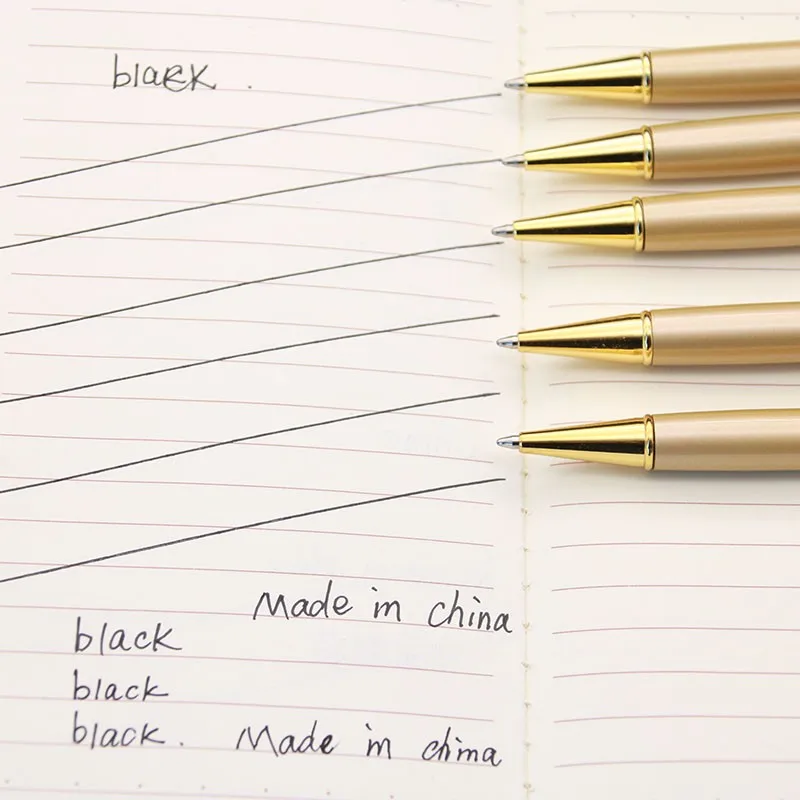 black .
Made in china
black
black
black. Made in china